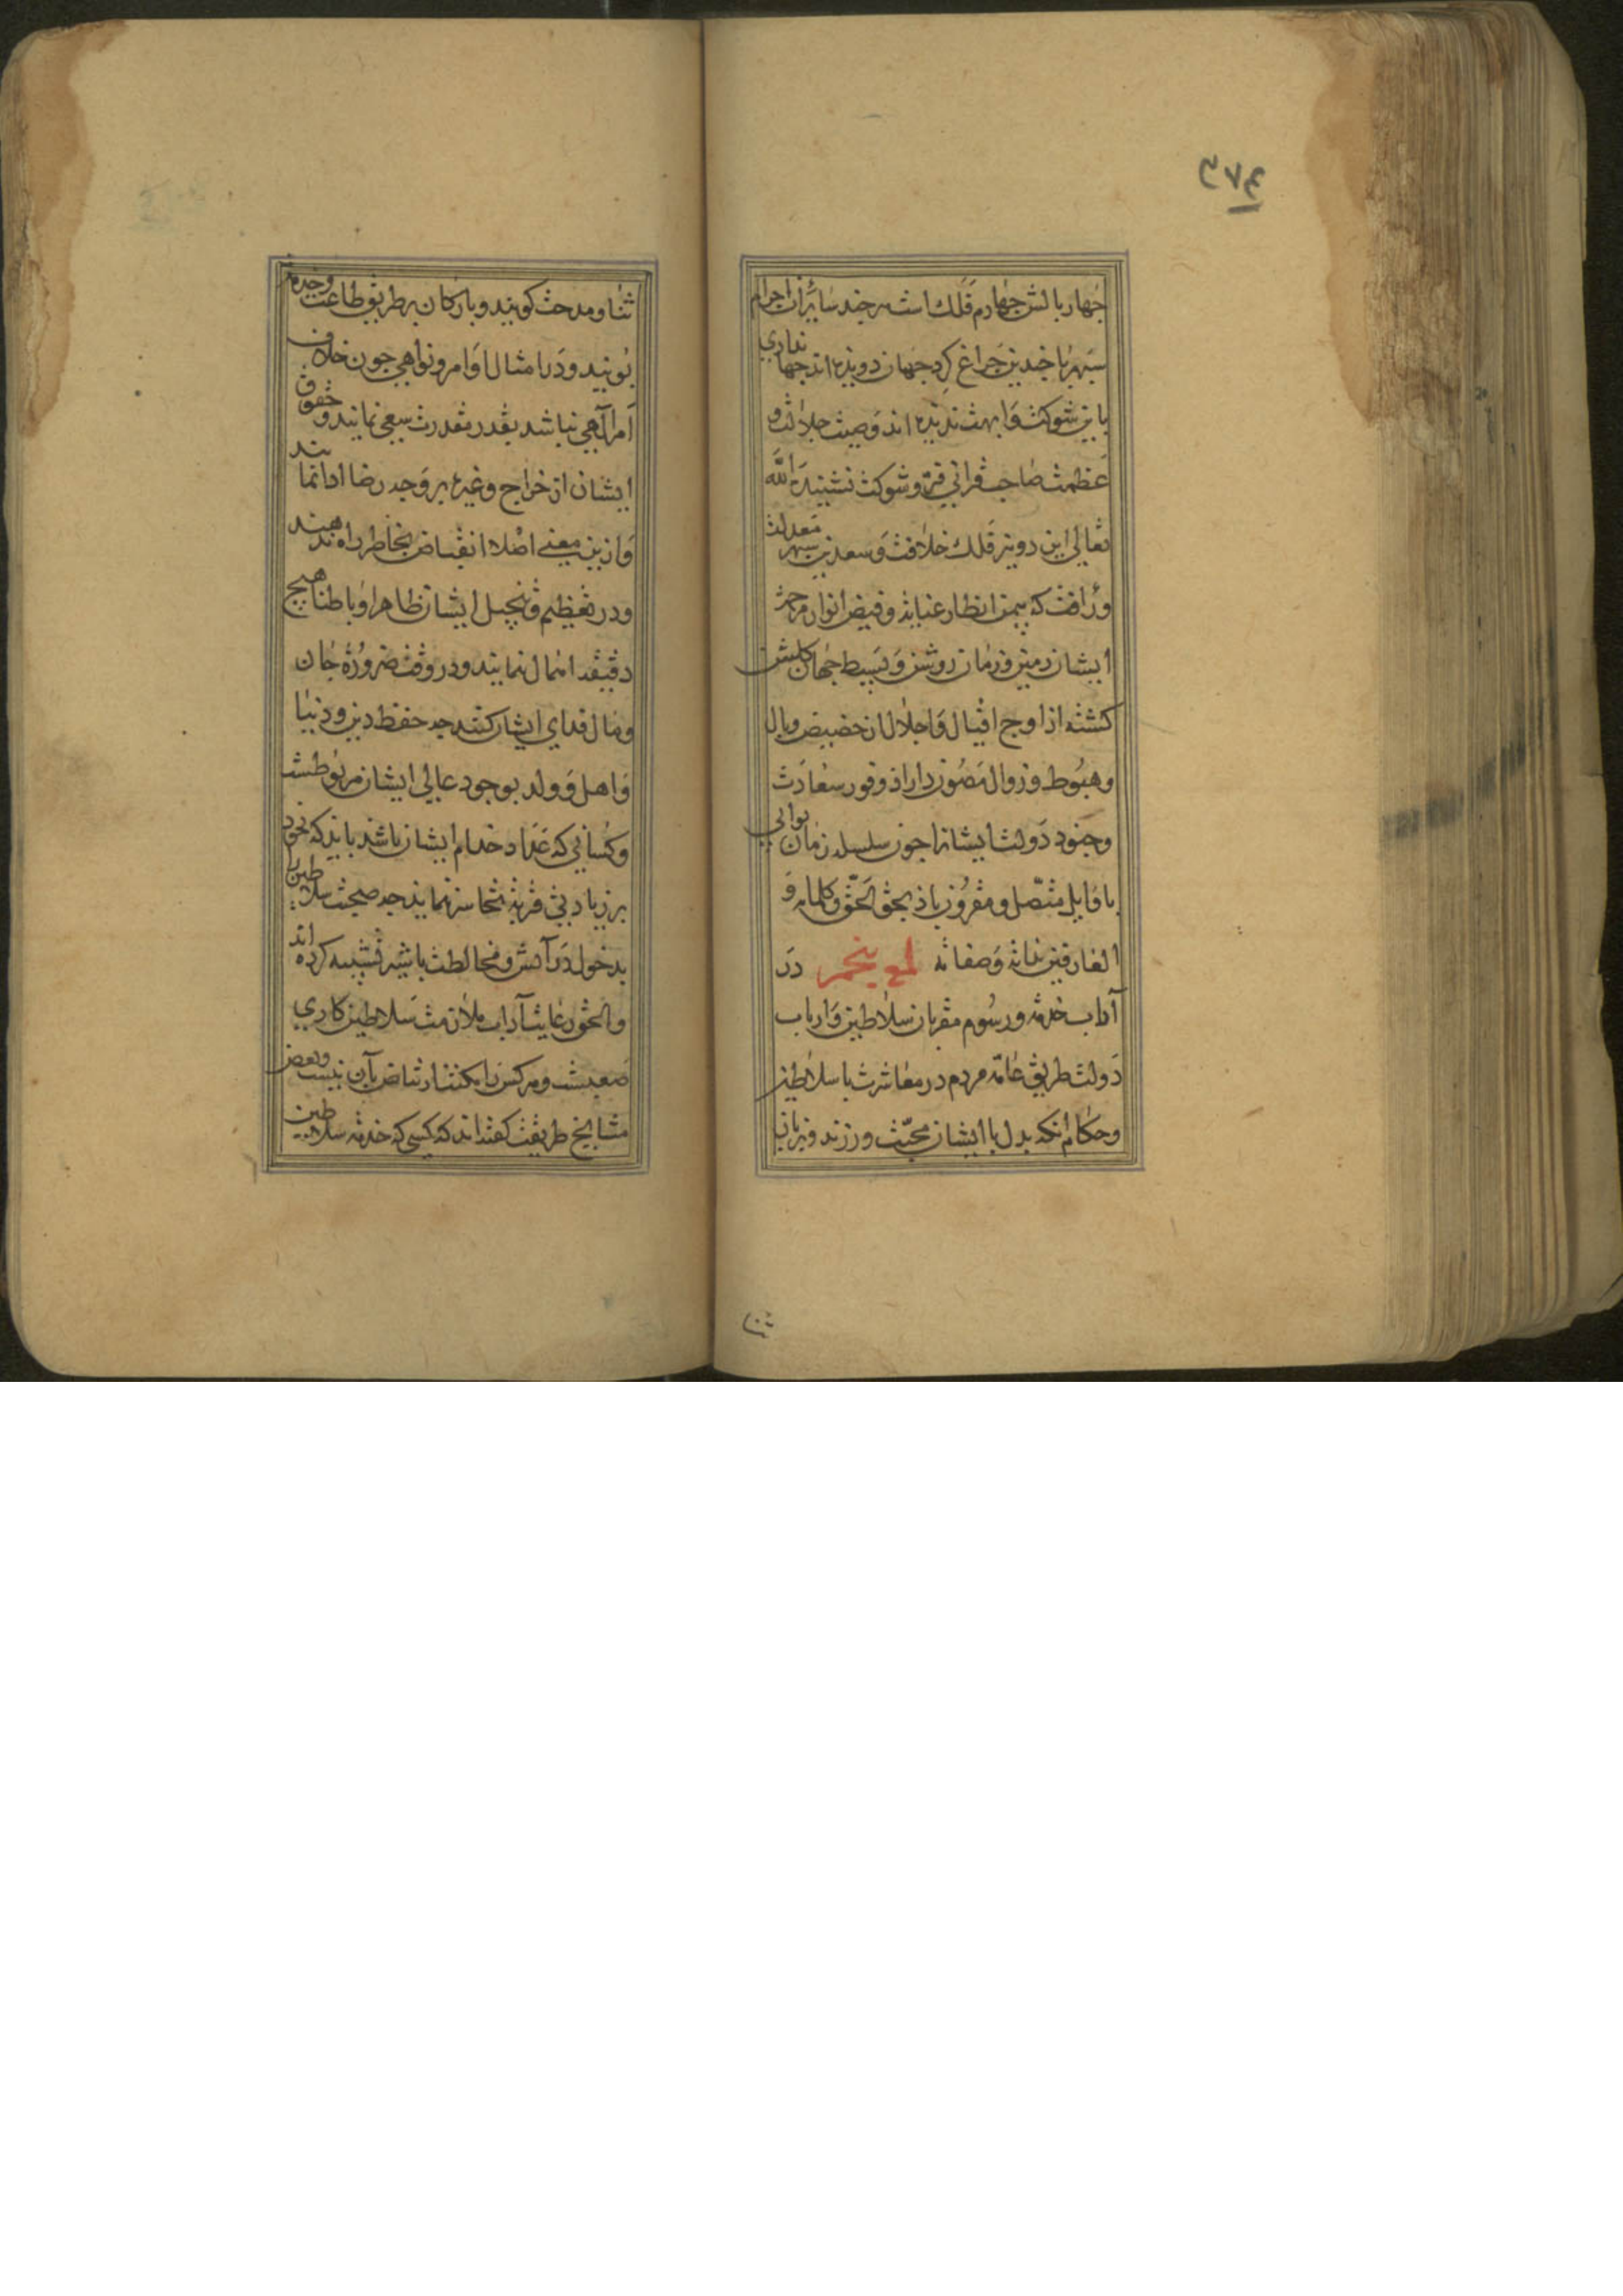 ۳۷۴
چهار بالش چهارم فلك است هر چند سایران اجرام
سپهر با چندین چراغ كرد جهان دویده اند جهانداری
باین شوكت و ابهت ندیده اند وصیت جلالت و
عظمت صاحب قرانی فر و شوكت نشنیده الله
تعالی این دو نیر فلك خلافت و سعدین سپهر معدلت
ورافت كه بیمن انظار عنایة و فیض انوار مرحمة
ایشان زمین و زمان روشن و بسیط جهان گلشن
كشته از اوج اقبال و اجلال از حضیض وبال
وهبوط و زوال مصون داراد و وفور سعادت
وجنود دولت ایشانرا چون سلسله زمان بوالی
با قابل متصل و مقرون باد بحق الحق و كلماته و
العارفین بذاته وصفاته لمع پنجم در
آداب خدمة ورسوم مقربان سلاطین و ارباب
دولت طریق عامه مردم در معاشرت با سلاطین
وحكام انكه بدل با ایشان محبت ورزند و بزبان
ثنا
ثنا و مدحت كویند و باركان بر طریق طاعت وخدمة
پویند و در امتثال اوامر و نواهی چون خلاف
امر الهی نباشد بقدر مقدرت سعی نمایند و حقوق
ایشان از خراج و غیره بر وجه رضا ادا نمایند
و ازین معنی اصلا انقباض بخاطر راه ندهند
ودر تعظیم و تبجیل ایشان ظاهرا و باطنا هیچ
دقیقه اهمال ننمایند و در وقت ضرورة جان
ومال فدای ایشان كنند چه حفظ دین و دنیا
و اهل و ولد بوجود عالی ایشان مربوطست
وكسانی كه عداد خدام ایشان باشد باید كه بخود
بر زیادتی قربة تجاسر ننماید چه صحبت سلاطین را
بدخول در آتش و مخالطت با شیر تشبیه كرده اند
والحق رعایت آداب ملازمت سلاطین كاری
صعبست وهر كس را مكنت ارتیاض بآن نیست وبعض
مشایخ طریقت كفته اند كه كسی كه خدمة سلاطین